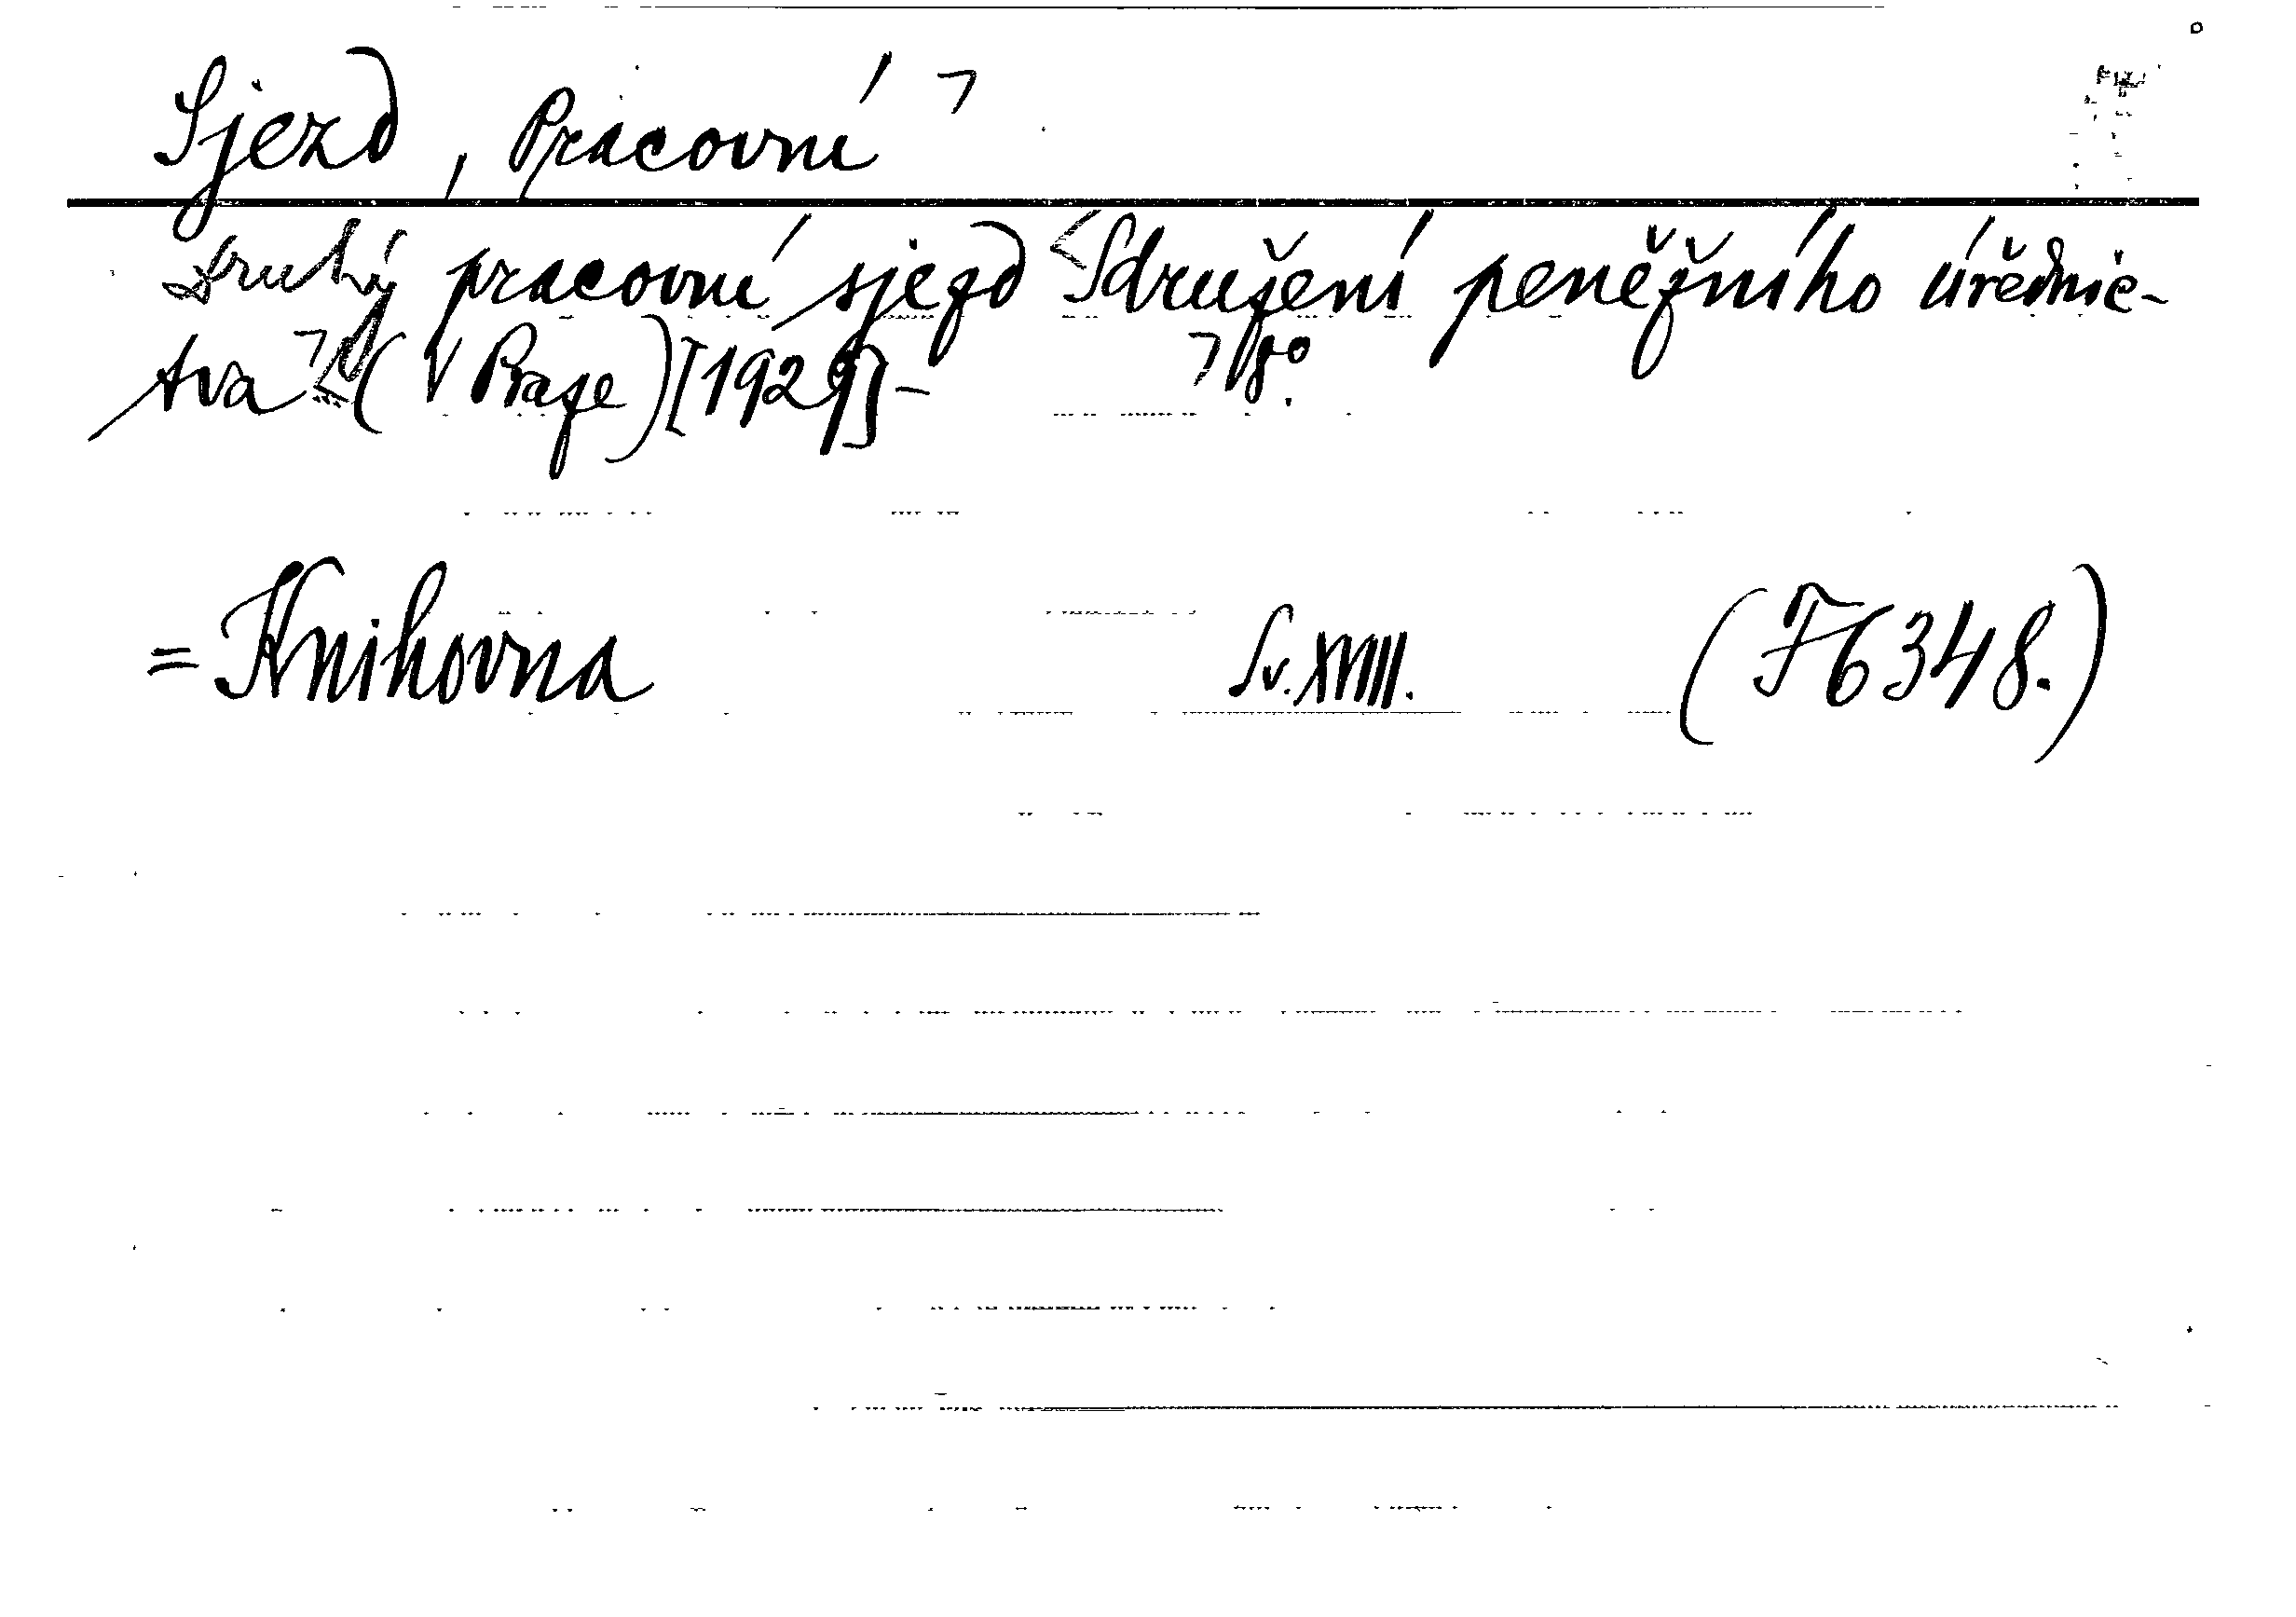 Sjezd, Pracovní ┐
Druhý pracovní sjezd <Sdružení peněžního úřednic-
tva ┐ (V Praze) [1929] - ┐ 8°.
= Knihovna Sv. XVIII. (F6348.)